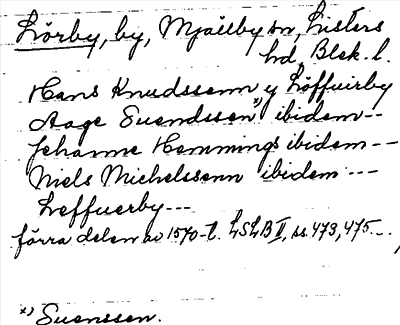 Lörby, by, Mjällby sn, Listers
hd, Blek. l.
Hans Knudssenn y Löffuirby
Aage Suendssen x) ibidem --
Jehanne Hemmings ibidem --
Niels Michelssenn ibidem ---
Leffuerby ---
förra delen av 1570-t. LSLB II, ss. 473, 475. --
x) Suenssen.